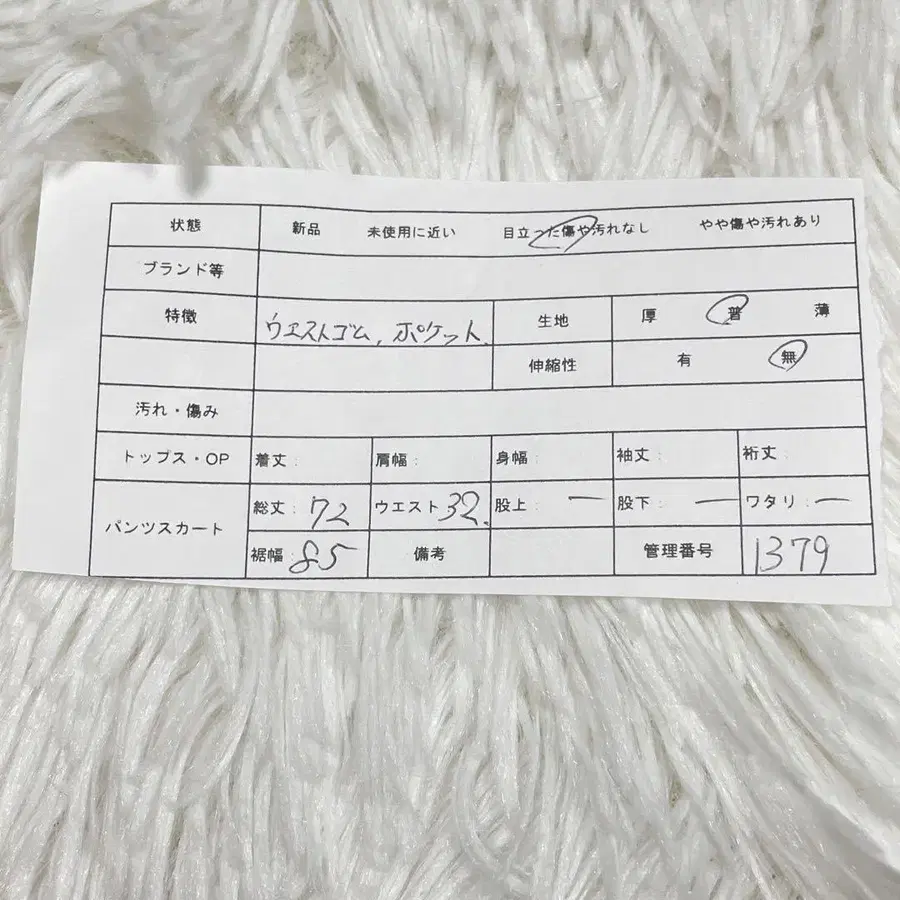 状態 新品 未使用に近い 目立った傷や汚れなし やや傷や汚れあり
ブランド等
特徴 ウエストゴム, ポケット. 生地 厚 普 薄
伸縮性 有 無
汚れ・傷み
トップス・OP 着丈: 肩幅: 身幅: 袖丈: 裄丈:
パンツスカート 総丈: 72 ウエスト 32. 股上: ー 股下: ー ワタリ: ー
裾幅: 85 備考 管理番号 1379